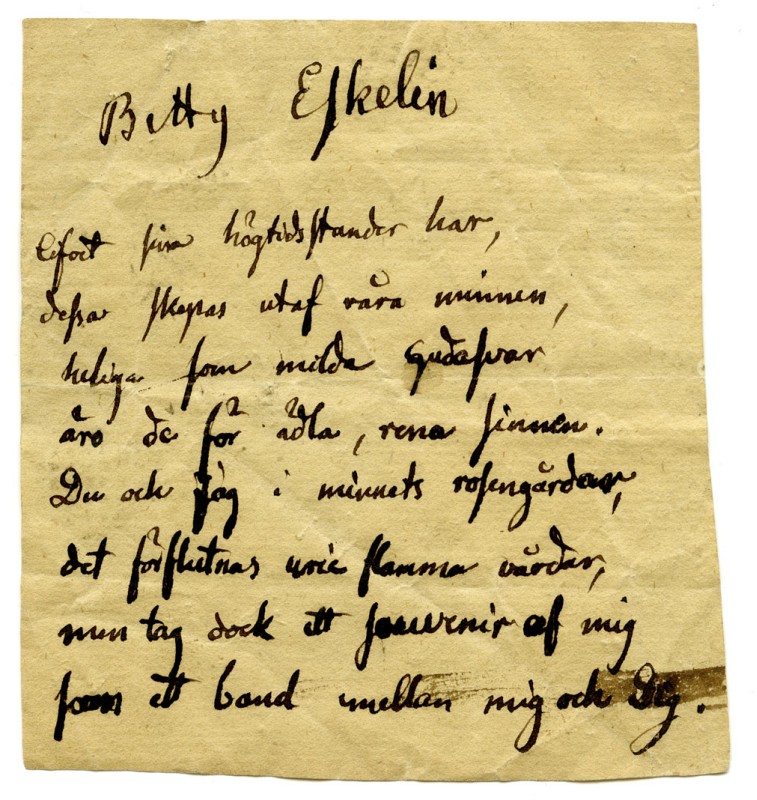 Betty Eskelin
lifvet sina högtidsstunder har,
dessa skapas utaf våra minnen,
heliga som milda gudasvar
äro de för ädla, rena sinnen.
Du och jag i minnets rosengårdar,
det förflutnas urie flamma vårdar,
men tag dock ett souvenir af mig
som ett band mellan mig och Dig.